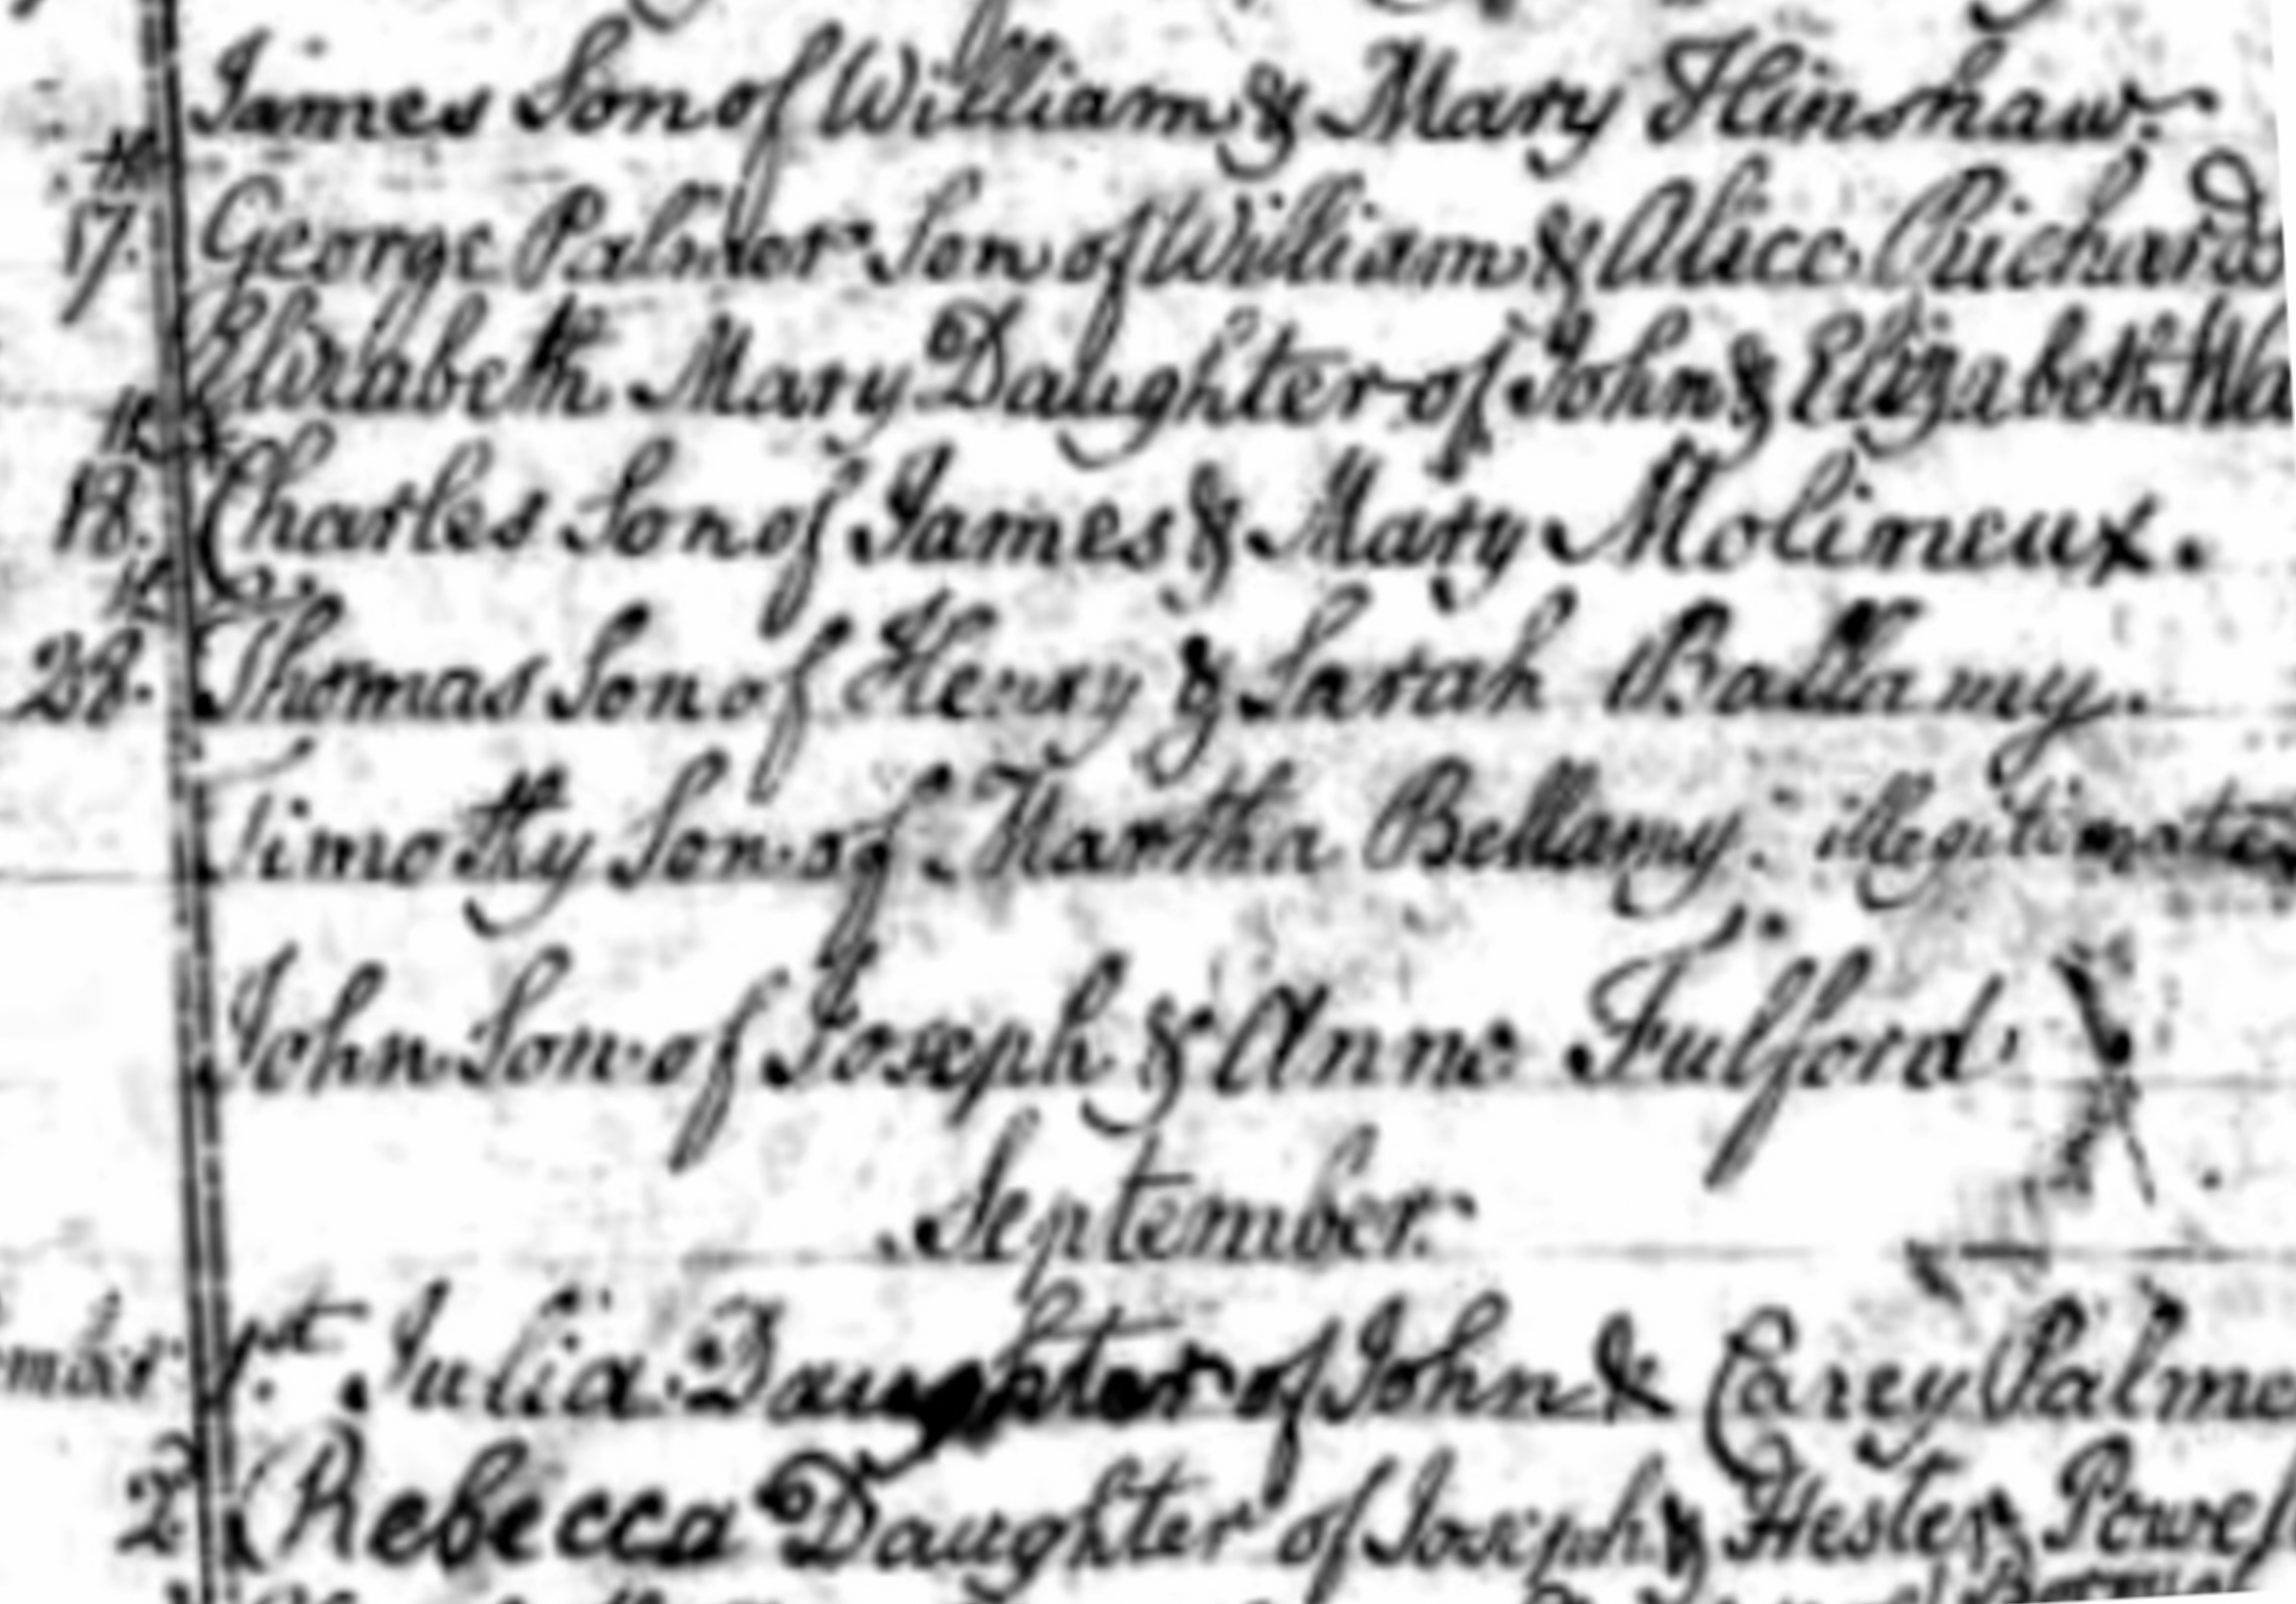 James Son of William & Mary Hinshaw.
17.th George Palmer Son of William & Alice Richards
Elizabeth Mary Daughter of John & Elizabeth Wa
18.th Charles Son of James & Mary Molineux.
28.th Thomas Son of Henry & Sarah Ballamy.
Timothy Son of Martha Bellamy. illegitimate
John Son of Joseph & Anne Fulford
September.
1st. Julia Daughter of John & Carey Palme
2 Rebecca Daughter of Joseph & Hester Powel